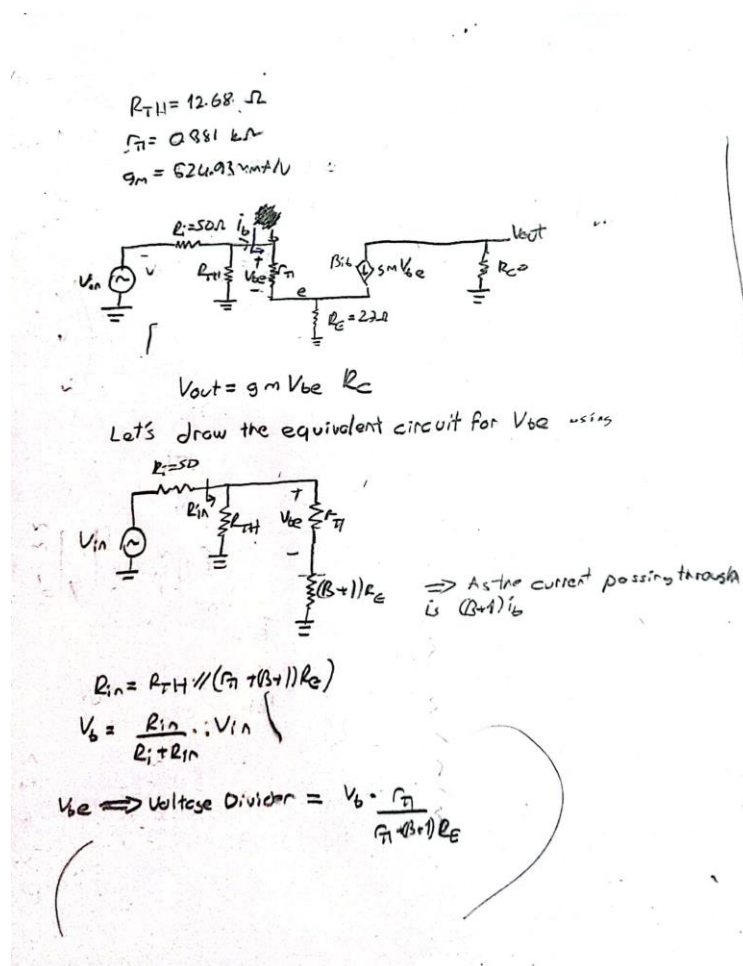 R_TH = 12.68 Ω
rπ = 0.881 kΩ
gm = 624.93
Ri=50Ω ib b Vout
Vin RTH Vbe rπ βib gmVbe RC
e
RE = 27Ω
Vout = gm Vbe RC
Let's draw the equivalent circuit for Vbe using
Ri=50
Rin RTH Vbe rπ
Vin
(β+1)RE ⇒ As the current passing through
is (β+1)ib
Rin = RTH // (rπ + (β+1)RE)
Vb = Rin / (Ri + Rin) · Vin
Vbe ⇒ Voltage Divider = Vb · rπ / (rπ + (β+1)RE)